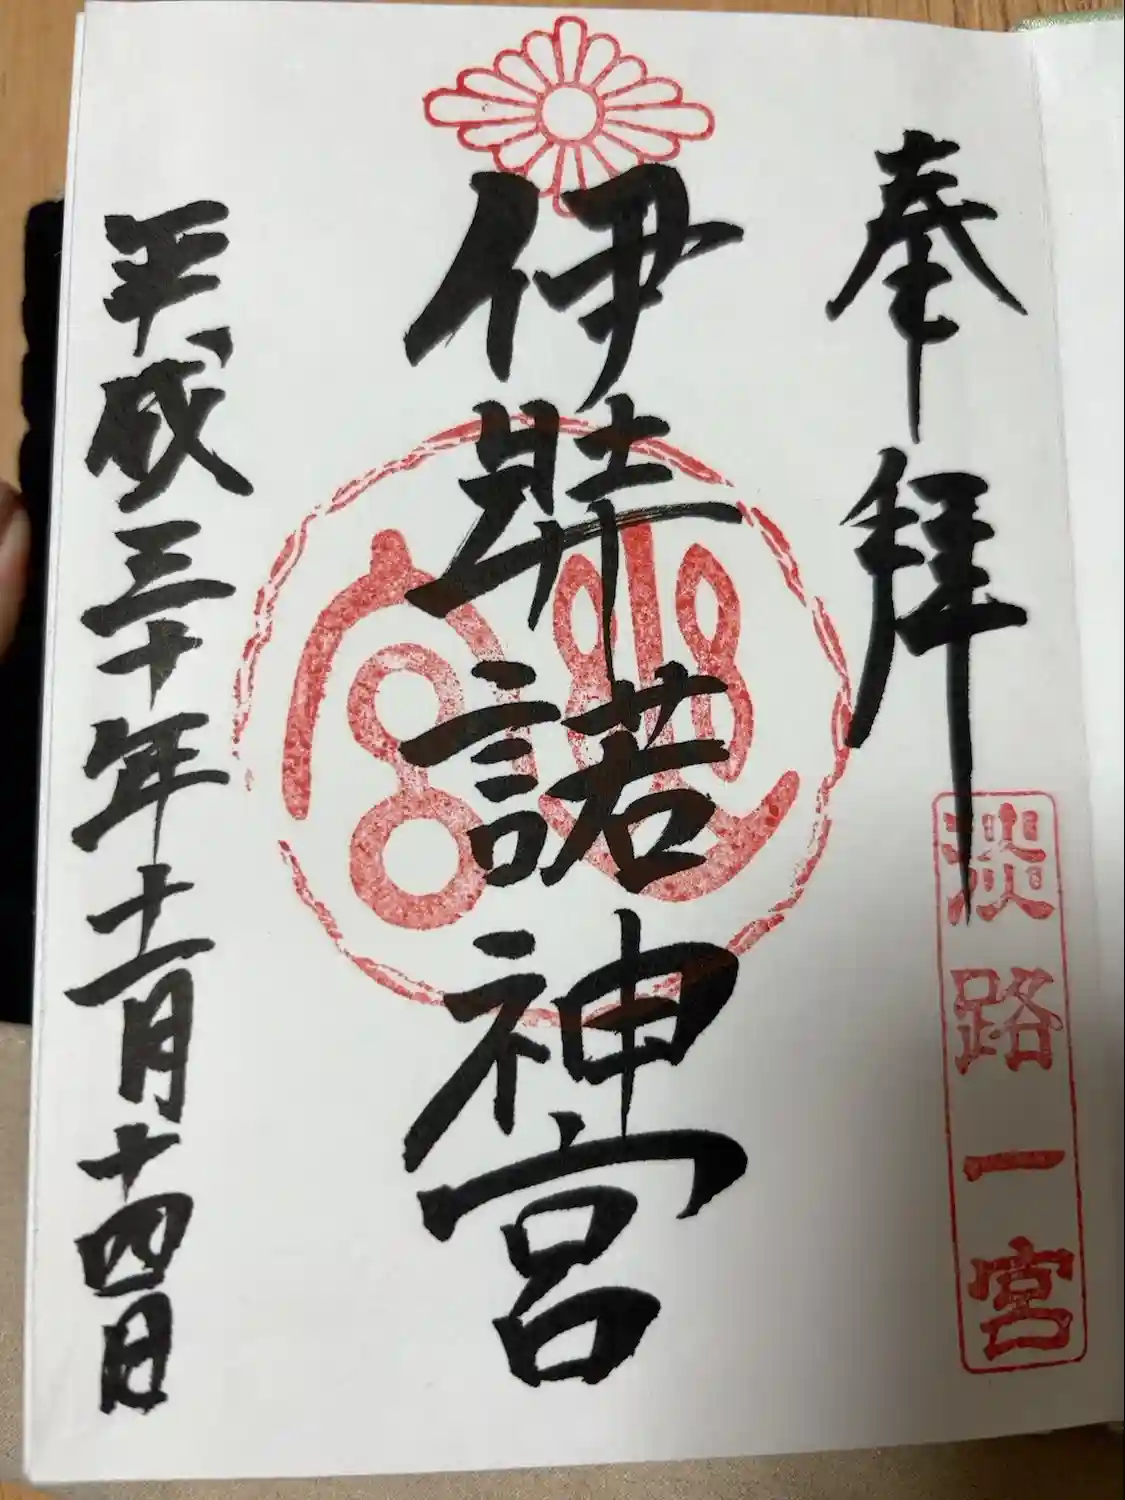 奉拝
淡路一宮
伊弉諾神宮
幽宮
平成三十年十二月十四日